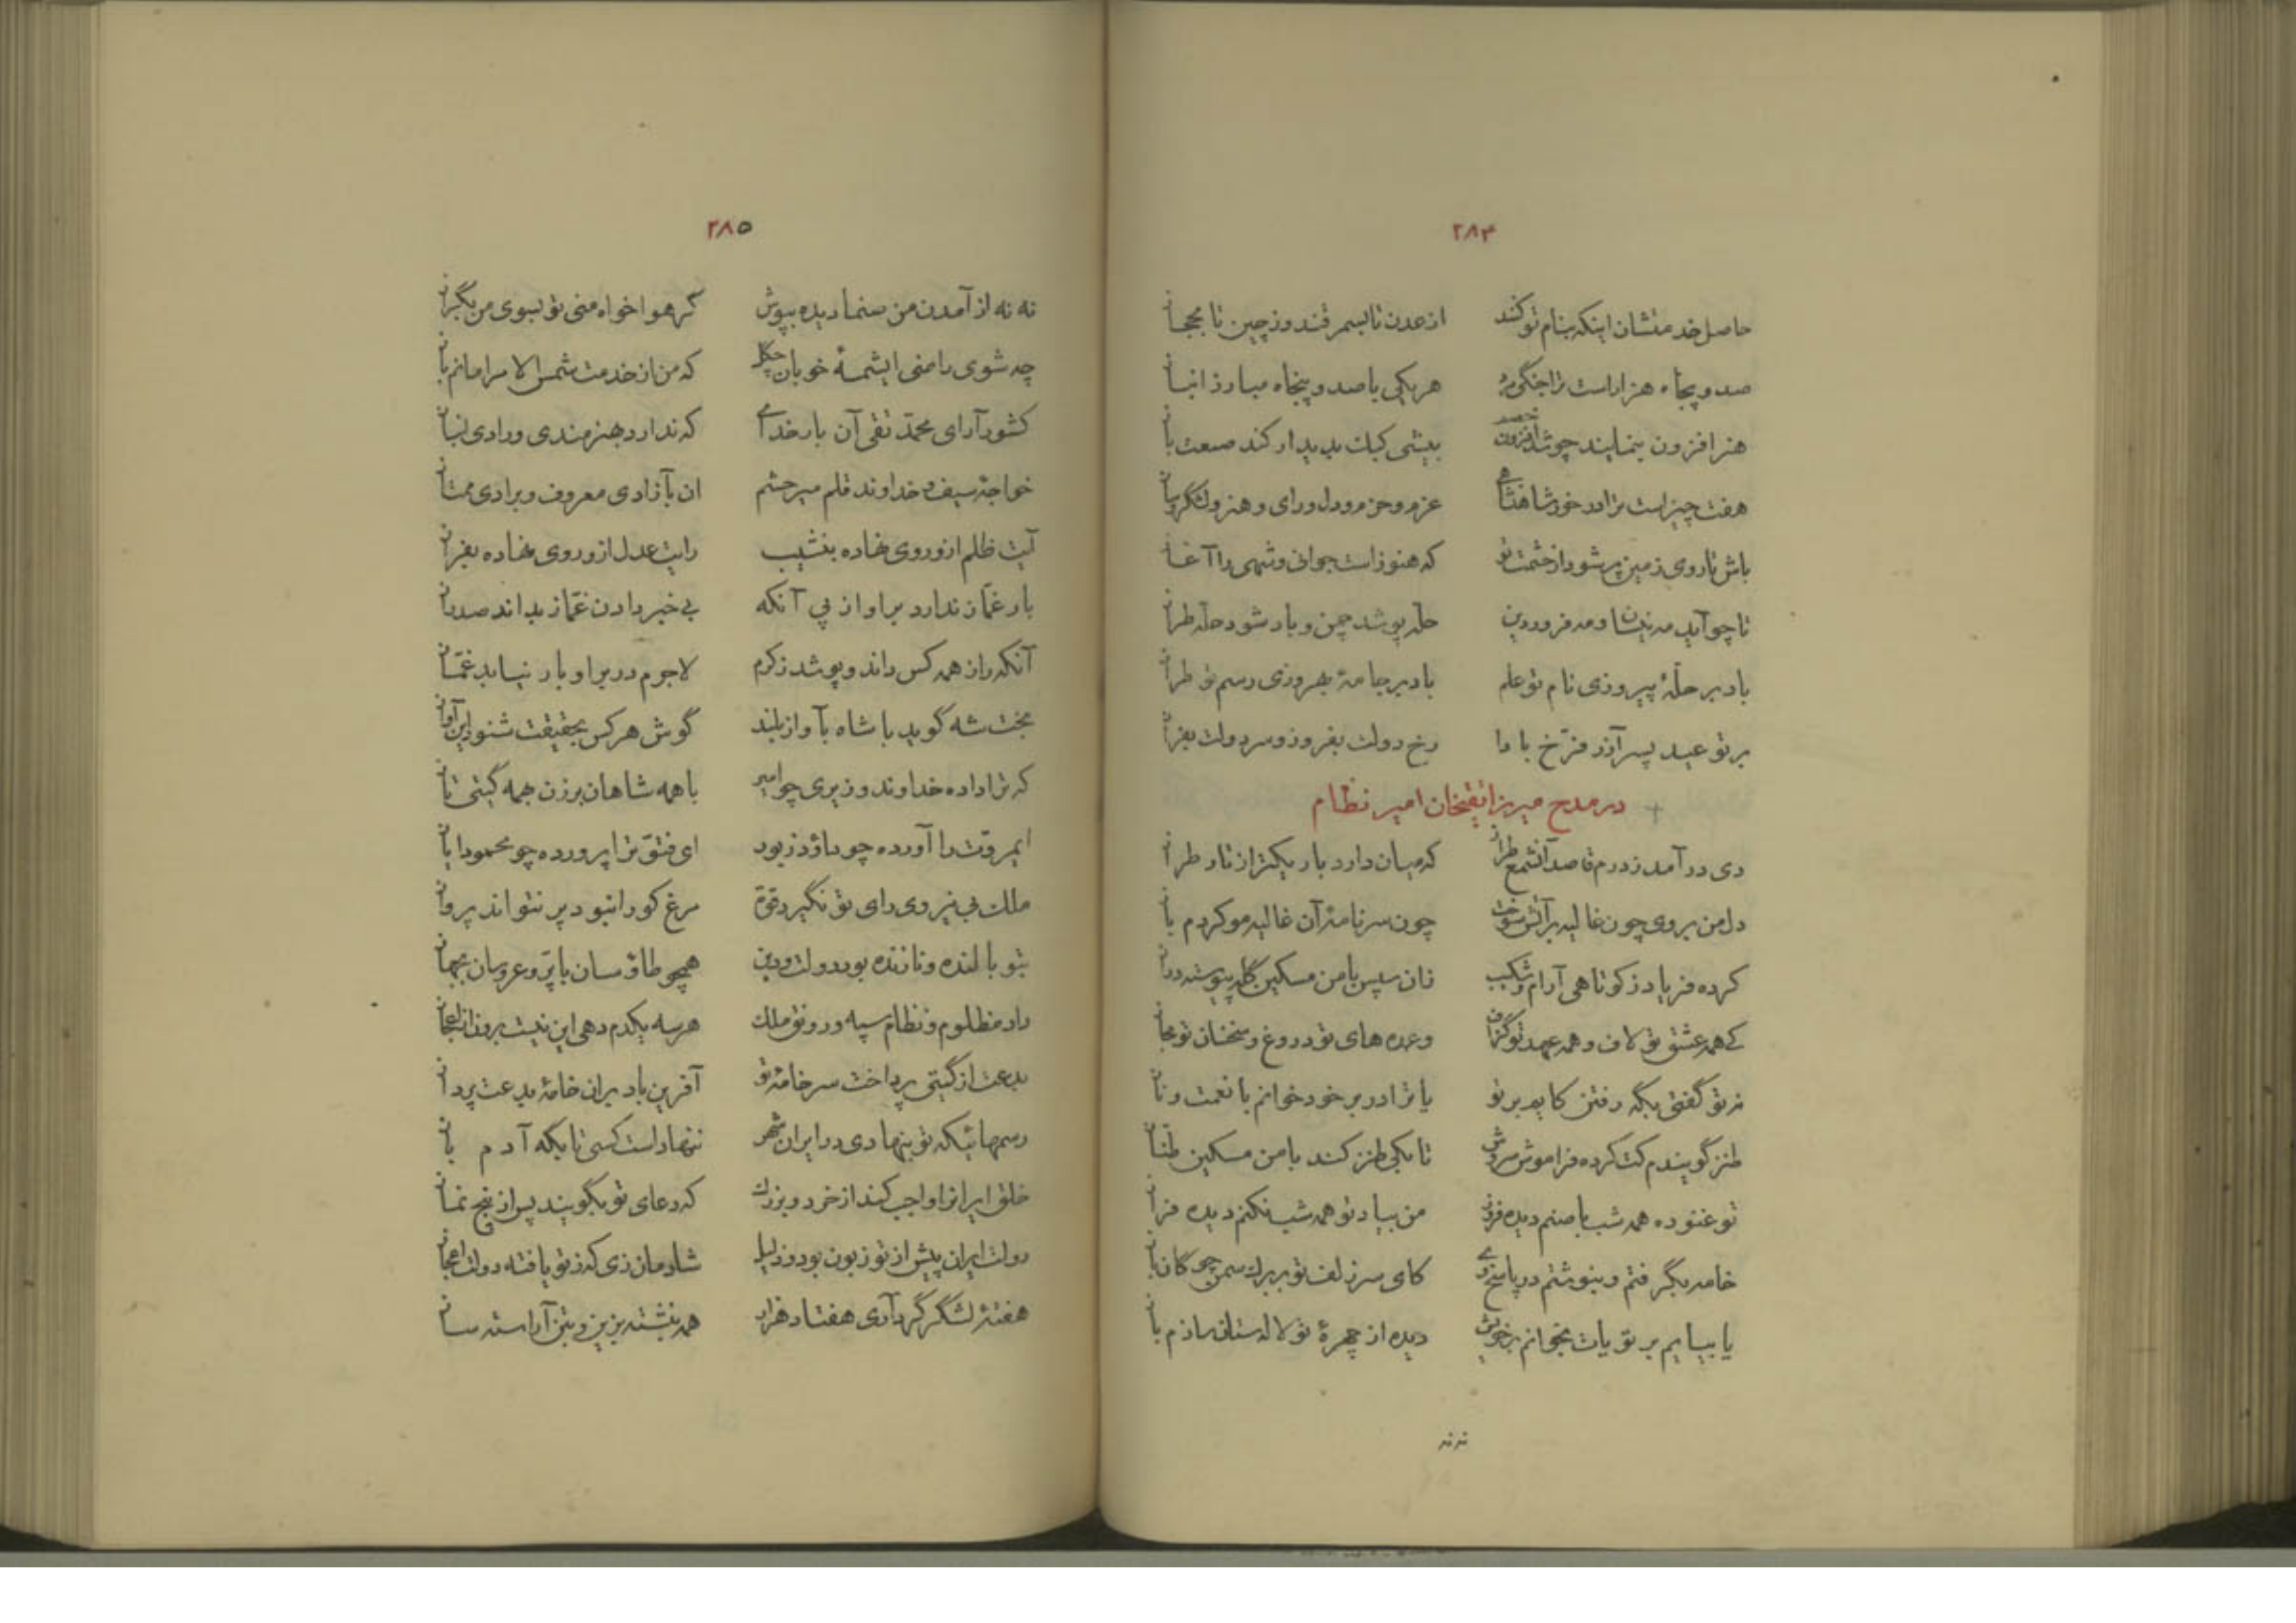 ۲۸۴
حاصل خدمتشان اینکه بنام تو کنند از عدن تا بسمرقند وز چین تا بحجاز
صد و پنجاه هزار است ترا جنگی مرد هر یکی با صد و پنجاه مبارز انباز
هنر افزون بنمایند چو شد خصم افزون بیشی کبک پدیدار کند صنعت باز
هفت چیز است ترا درخور شاهنشاهی عزم و حزم و دل و رای و هنر و لشگر و ساز
باش تا روی زمین پر شود از حشمت تو که هنوز است جوانی و شهی را آغاز
تا چو آید مه نیسان و مه فروردین حله پوشد چمن و باد شود حله طراز
باد بر حلّهٔ پیروزی نام تو علم باد بر جامهٔ بهروزی رسم تو طراز
بر تو عید پسر آزر فرّخ بادا رخ دولت بفروز و سر دولت بفراز
در مدح میرزا تقیخان امیر نظام
دی درآمد ز درم قاصد آنشمع طراز که میان دارد باریکتر از تار طراز
دل من بر وی چون غالیه بر آتش سوخت چون سر نامهٔ آن غالیه مو کردم باز
کرده فریاد ز کوتاهی آرام و شکیب زان سپس با من مسکین گله پیوسته دراز
کی همه عشق تو لاف و همه عهد تو گزاف وعده های تو دروغ و سخنان تو مجاز
نه تو گفتی بگه رفتن کایم بر تو یا ترا در بر خود خوانم با نعمت و ناز
طنز گویندم کت کرده فراموش سروش تا بکی طنز کند با من مسکین طنّاز
تو غنوده همه شب با صنم دیده فروز من بیاد تو همه شب نکنم دیده فراز
خامه بگرفتم و بنوشتم در پاسخ وی کای سر زلف تو بر برگ سمن چوگان باز
یا بیایم بر تو یات بخوانم بر خویش دیده از چهرهٔ تو لالهستان سازم باز
نه نه
۲۸۵
نه نه از آمدن من صنما دیده بپوش گر هواخواه منی تو بسوی من بگراز
چه شوی راضی ایشمسهٔ خوبان چگل که من از خدمت شمس الامرا مانم باز
کشور آرای محمّد تقی آن بار خدای که ندارد بهنرمندی و رادی انباز
خواجهٔ سیف و خداوند قلم میر حشم ان بآزادی معروف و برادی ممتاز
آیت ظلم ازو روی نهاده بنشیب رایت عدل ازو روی نهاده بفراز
بار غمّاز ندارد بر او از پی آنکه بی خبر دادن غمّاز بداند صد راز
آنکه راز همه کس داند و پوشد ز کرم لاجرم در بر او بار نیابد غمّاز
بخت شه گوید با شاه بآواز بلند گوش هر کس بحقیقت شنود این آواز
که ترا داده خداوند وزیری چو امیر با همه شاهان برزن بهمه گیتی تاز
ایمروّت را آورده چو داود زبور ای فتوّت ترا پرورده چو محمود ایاز
ملک بی نیروی رای تو نگیرد قوّة مرغ کو را نبود پر نتواند پرواز
بتو بالنده و نازنده بود دولت و دین همچو طاوسان با پرّ و عروسان بجهاز
داد مظلوم و نظام سپه و رونق ملک هر سه یکدم دهی این نیست برون از اعجاز
بدعت از گیتی پرداخت سر خامهٔ تو آفرین باد بران خامهٔ بدعت پرداز
رسمهائیکه تو بنهادی در ایران شهر ننهاد است کسی تا بگه آدم باز
خلق ایرانرا واجب کند از خرد و بزرگ که دعای تو بگویند پس از پنج نماز
دولت ایران پیش از تو زبون بود و ذلیل شادمان زی که ز تو یافته دولت اعجاز
هفتهٔ لشگر گرد آری هفتاد هزار همه بنشسته بزین و بتن آراسته ساز